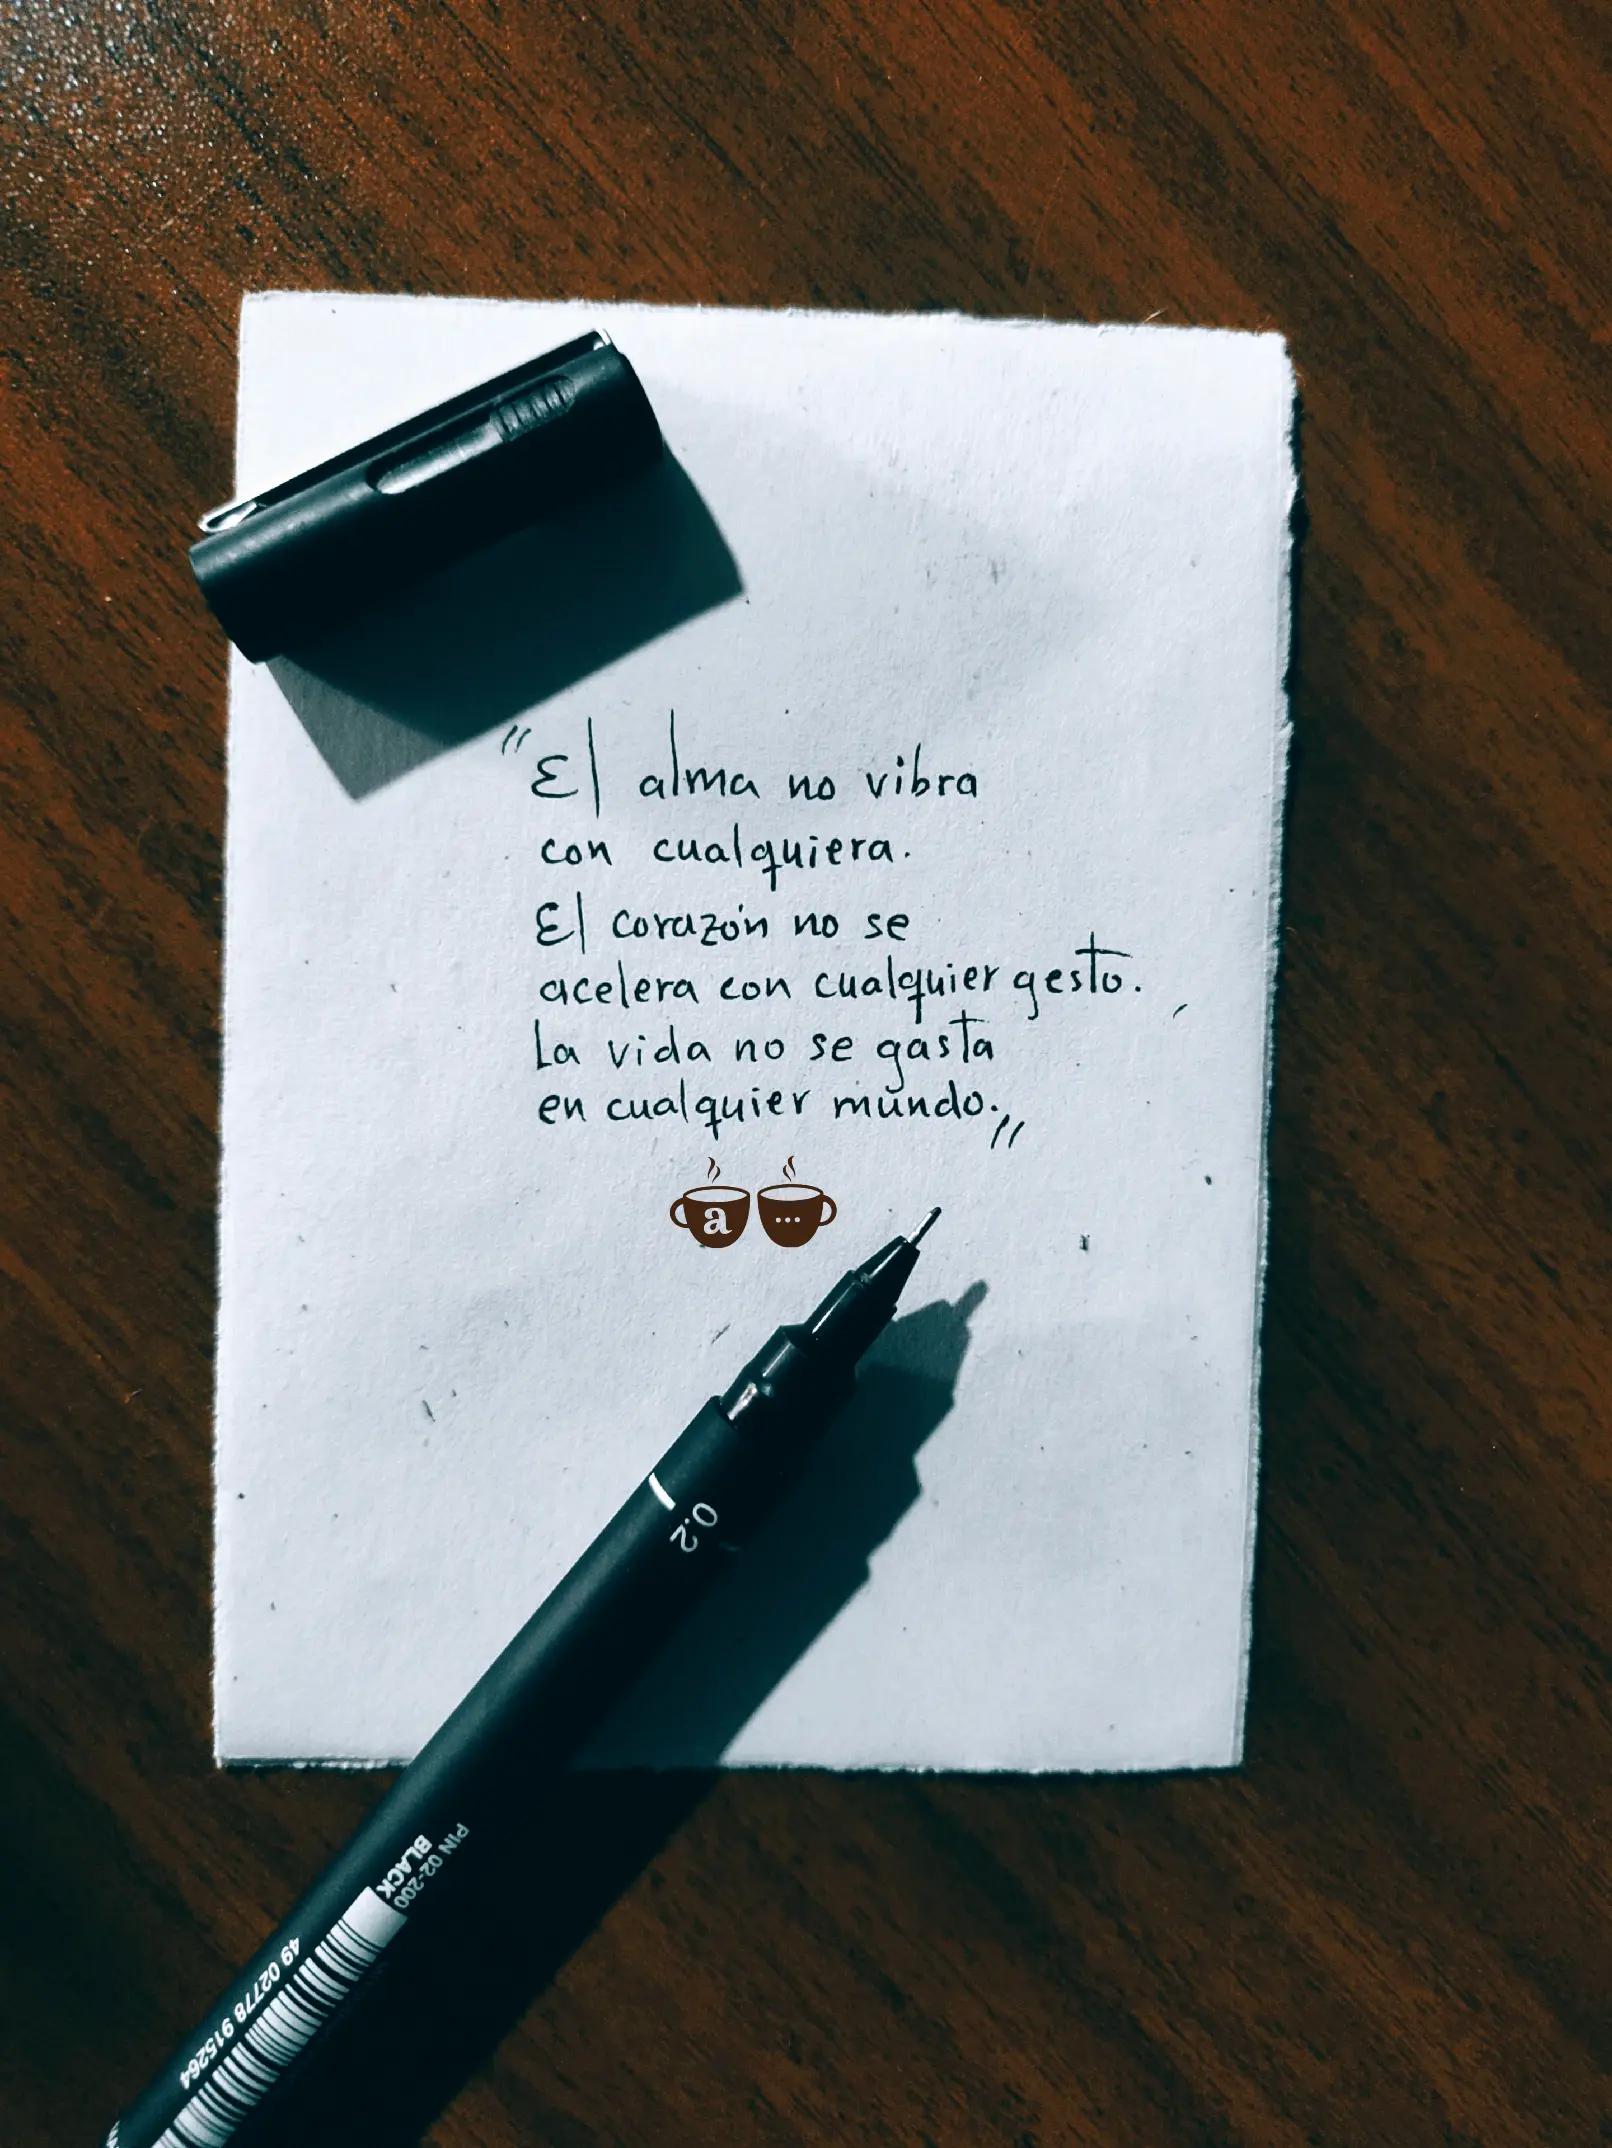 "El alma no vibra
con cualquiera.
El corazón no se
acelera con cualquier gesto.
La vida no se gasta
en cualquier mundo."
a ...
0.2
PIN 02-200
BLACK
49 02778 915264